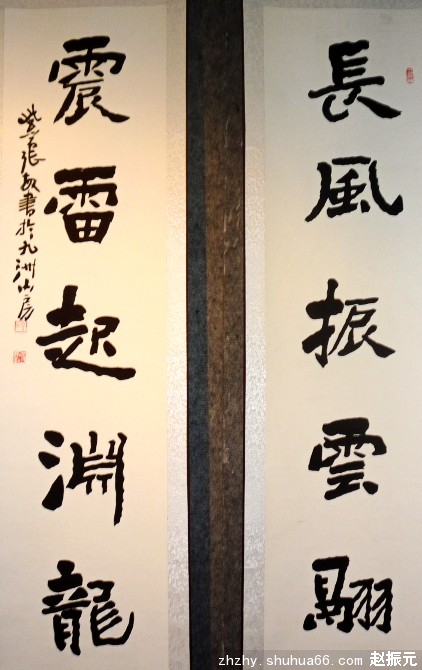 長風振雲翮
震雷起淵龍
張書於九洲山房
zhzhy.shuhua66.com 赵振元